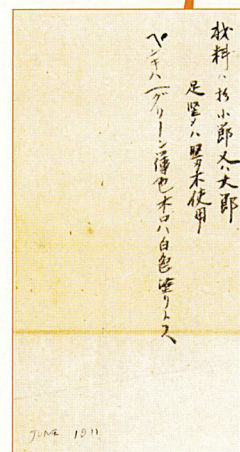 材料ハ杉小節又ハ大節
足堅メハ堅木使用
ペンキハグリーン薄色木口ハ白色塗リトス
JUNE 1911